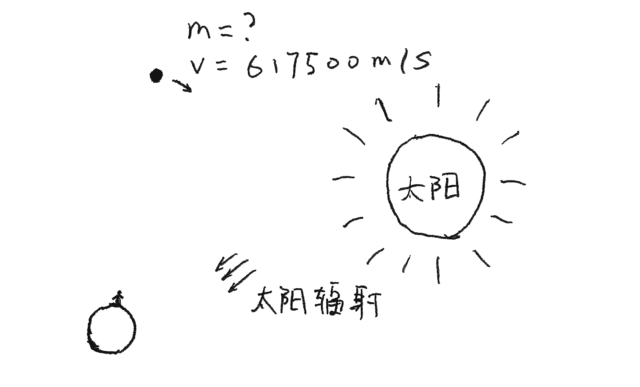 m=?
v=617500m/s
太阳
太阳辐射